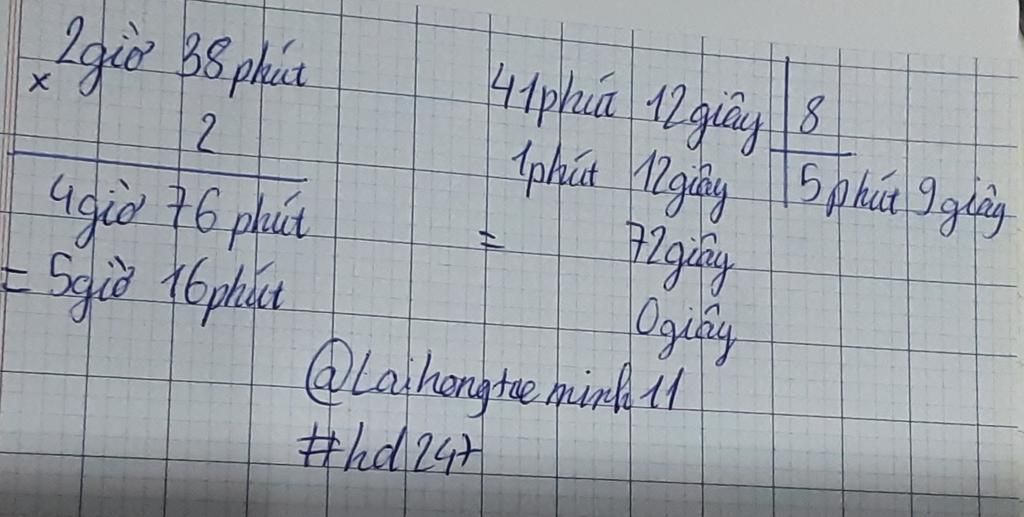 2giờ 38phút
×
2
4giờ 76phút
= 5giờ 16phút
41phút 12giây 8
1phút 12giây 5phút 9giây
= 72giây
0giây
@Laihongtueminh11
#hd247